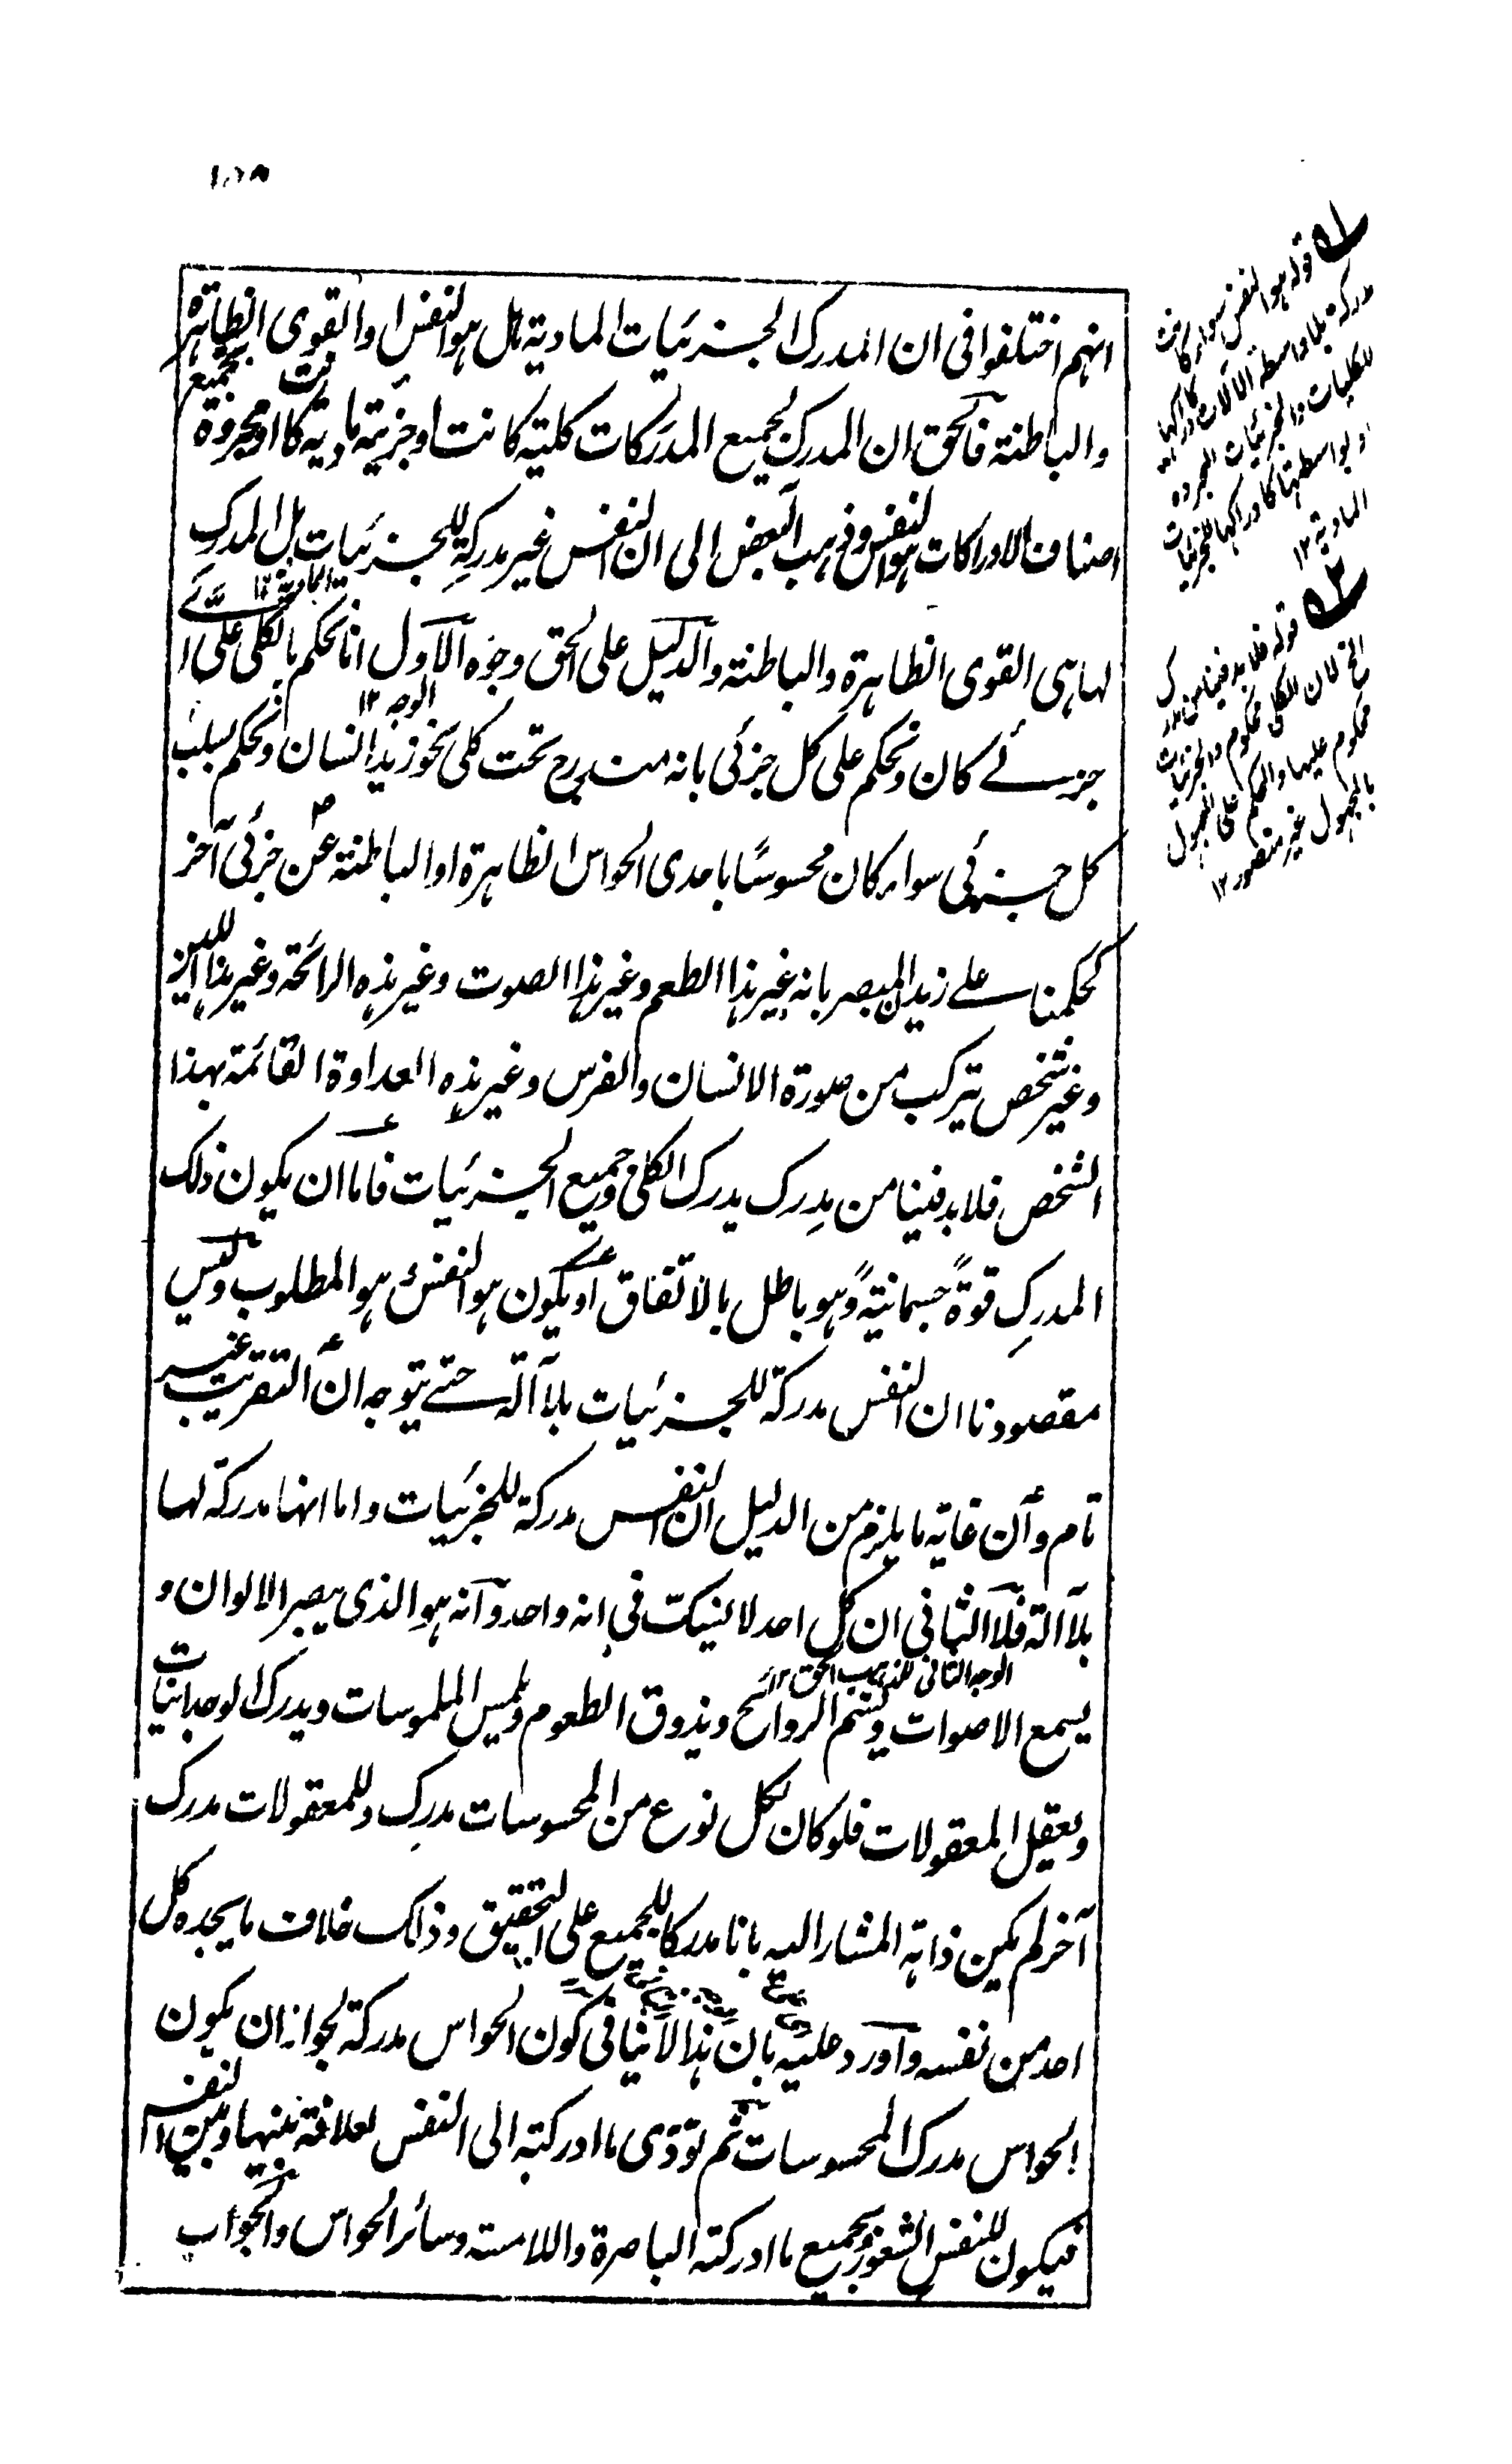 ١٥٨
انهم اختلفوا فى ان المدرك الجزئيات المادية هل هو النفس او القوى الظاهرة
والباطنة فالحق ان المدرك لجميع المدركات كلية كانت او جزئية مادية كانت او مجردة بجميع
اصناف الادراكات هو النفس وذهب البعض الى ان النفس غير مدركة للجزئيات بل المدرك
المادية ١٢
لها هى القوى الظاهرة والباطنة والدليل على الحق وجوه الاول انا نحكم بالكلى على اى
الوجه ١٢
جزئے كان ونحكم على كل جزئى بانه مندرج تحت كلى نحو زيد انسان ونحكم بسلب
كل جزئى سواء كان محسوسًا باحدى الحواس الظاهرة او الباطنة عن جزئى آخر
كحكمنا علے زيد المبصر بانه غير هذا الطعم وغير هذا الصوت وغير هذه الرائحة وغير هذا اللين
وغير شخص يتركب من صورة الانسان والفرس وغير هذه العداوة القائمة بهذا
الشخص فلا بد فينا من مدرك يدرك الكلى وجميع الجزئيات فاما ان يكون ذلك
المدرك قوةً جسمانيةً وهو باطل بالاتفاق او يكون هو النفس هو المطلوب وليس
مقصودنا ان النفس مدركة للجزئيات بلا آلة حتے يتوجه ان التقريب غير
تام وان غاية ما يلزم من الدليل ان النفس مدركة للجزئيات واما انها مدركة لها
بلا آلة فلا الثانى ان كل احد لا يشك فى انه واحد وانه هو الذى يبصر الالوان و
الوجه الثانى للمذهب الحق ١٢
يسمع الاصوات ويشم الروائح ويذوق الطعوم ويلمس الملموسات ويدرك الوجدانيات
ويعقل المعقولات فلو كان لكل نوع من المحسوسات مدرك وللمعقولات مدرك
آخر لم يكن ذاته المشار اليه بانا مدركا للجميع على التحقيق وذلك خلاف ما يجده كل
احد من نفسه واورد عليه بان هذا لا ينافى كون الحواس مدركة لجواز ان يكون
الحواس مدرك المحسوسات ثم تؤدى ما ادركته الى النفس لعلاقة بينها وبين النفس
فيكون للنفس الشعور بجميع ما ادركته الباصرة واللامسة وسائر الحواس والجواب
١ قوله هو النفس سواء كانت
مدركة بلا واسطة الآلات كادراكها
للكليات والجزئيات المجردة
او بواسطتها كادراكها للجزئيات
المادية ١٢
٢ قوله فلا بد فينا من مدرك
الخ لان الكلى محكوم والجزئيات
محكوم عليها والحكم على المجهول
بالمجهول غير متصور ١٢